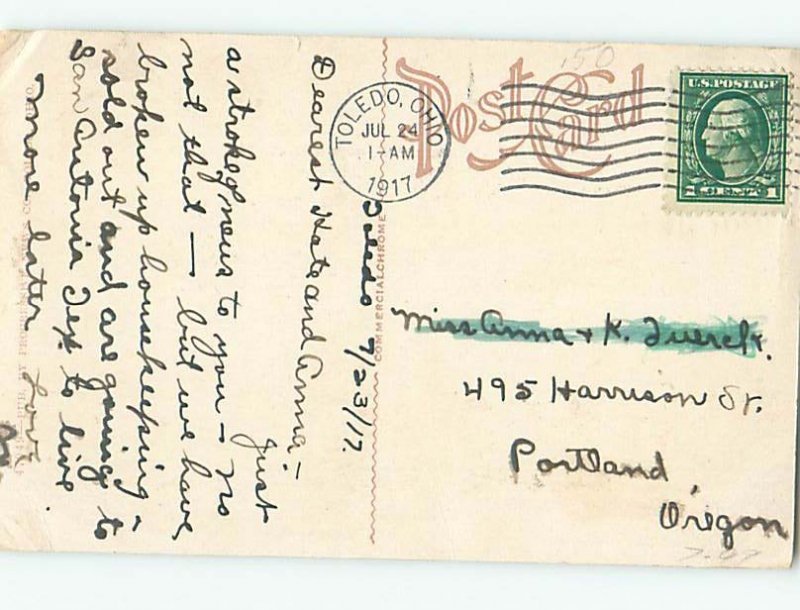 Post Card
150
TOLEDO, OHIO
JUL 24
1-AM
1917
U.S. POSTAGE
1 CENT 1
COMMERCIALCHROME
Toledo 7/23/17.
Dearest Kate and Anna -
Just
a stroke of news to you - no
not that - but we have
broken up housekeeping -
sold out and are going to
San Antonia Tex to live
more later Love
Miss Anna & K. Tuerck.
495 Harrison St.
Portland,
Oregon